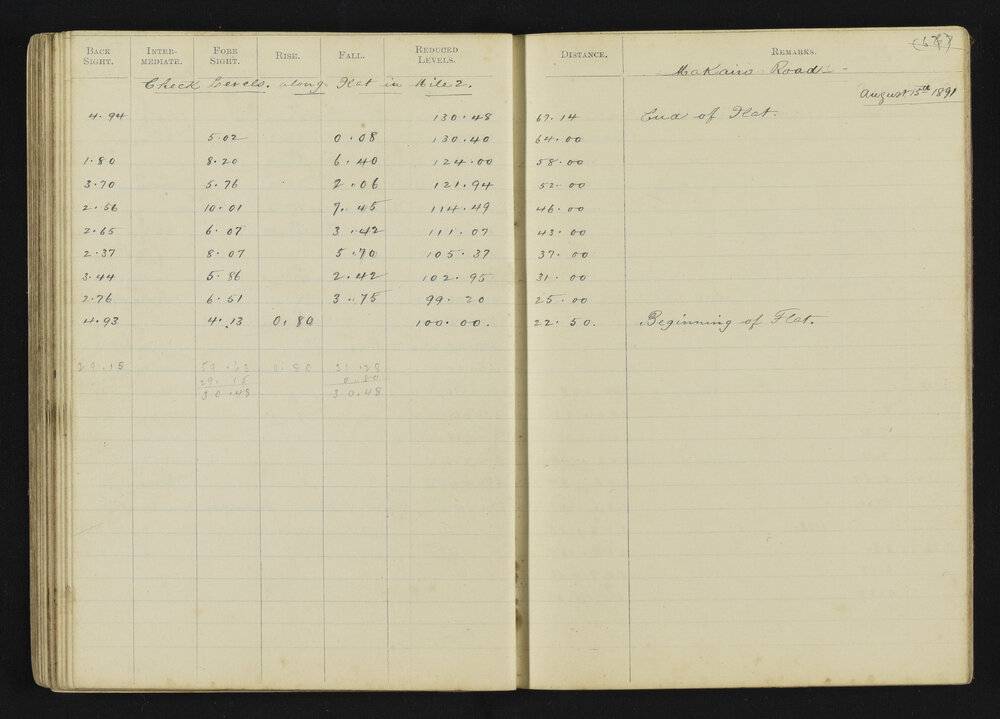 BACK SIGHT. INTER-MEDIATE. FORE SIGHT. RISE. FALL. REDUCED LEVELS. DISTANCE. REMARKS.
Makairo Road
August 15th 1891
Check Levels. along Flat in Mile 2.
4.94 130.48 67.14 End of Flat.
5.02 0.08 130.40 64.00
1.80 8.20 6.40 124.00 58.00
3.70 5.76 2.06 121.94 52.00
2.56 10.01 7.45 114.49 46.00
2.65 6.07 3.42 111.07 43.00
2.37 8.07 5.70 105.37 37.00
3.44 5.86 2.42 102.95 31.00
2.76 6.51 3.75 99.20 25.00
4.93 4.13 0.80 100.00. 22.50. Beginning of Flat.
29.15 59.63 0.80 31.28
29.15 0.80
30.48 30.48